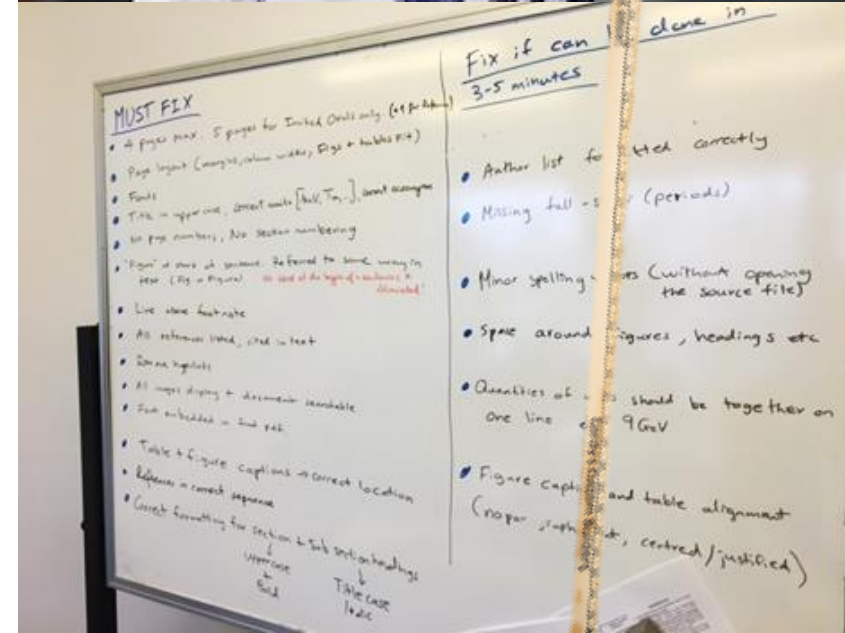 MUST FIX
• 4 pages max. 5 pages for Invited Orals only.
• Page layout (margins, column width, Figs + tables fit)
• Fonts
• Title in uppercase, correct units [keV, Tm, ..], correct acronyms
• No page numbers, No section numbering
• "Figure" at start of sentence. Referred to same way in
text (Fig or Figure)
• Line above footnote
• All references listed, cited in text
• Remove hyperlinks
• All images display + document searchable
• Font embedded in final pdf
• Table + figure captions → correct location
• References in correct sequence
• Correct formatting for section + Sub section headings
↓ ↓
uppercase Title case
+ Italic
Bold
Fix if can done in
3-5 minutes
• Author list fo tted correctly
• Missing full - s (periods)
• Minor spelling es (without opening
the source file)
• Space around igures, headings etc
• Quantities of should be together on
one line 9 GeV
• Figure capti and table alignment
(no par graph, centred/justified)